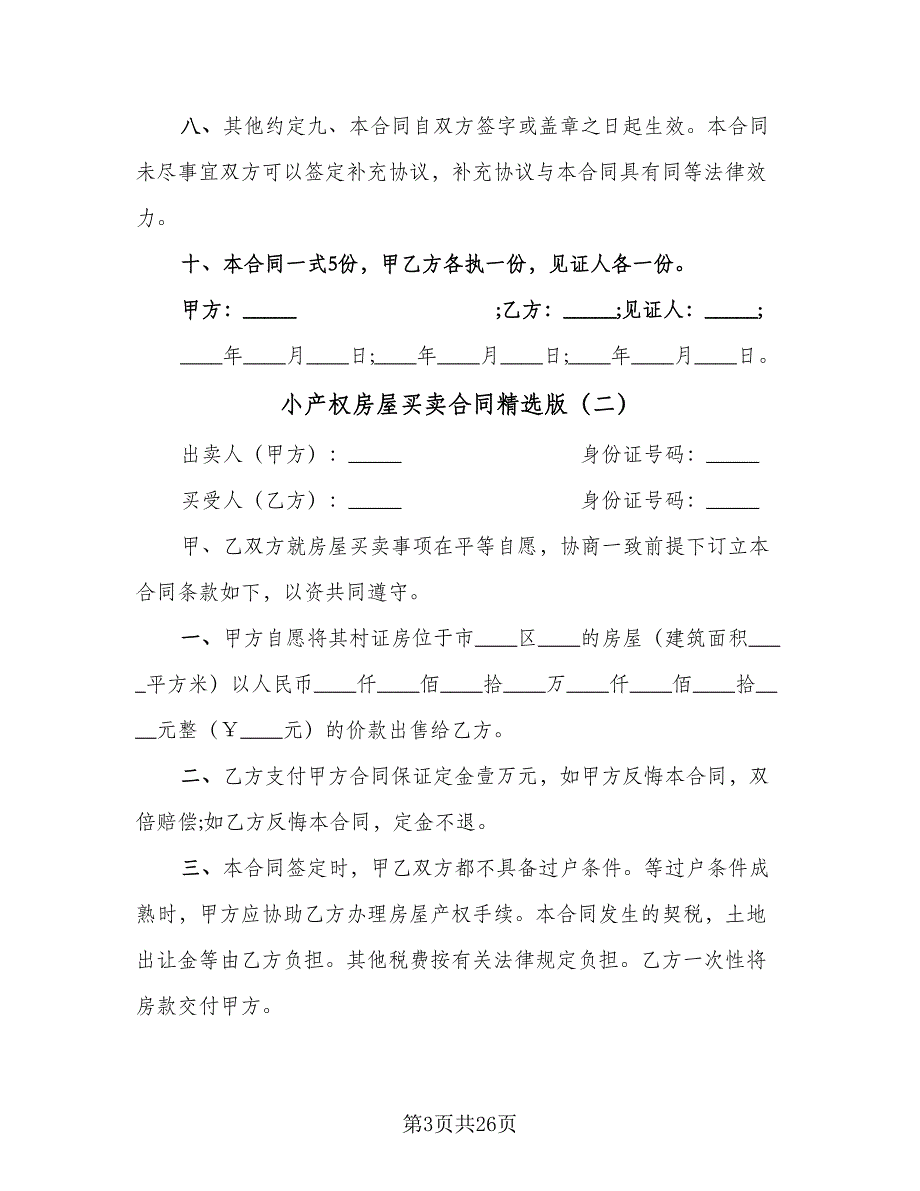 八、其他约定九、本合同自双方签字或盖章之日起生效。本合同
未尽事宜双方可以签定补充协议，补充协议与本合同具有同等法律效
力。
十、本合同一式5份，甲乙方各执一份，见证人各一份。
甲方：_____ ;乙方：_____;见证人：_____;
____年____月____日;____年____月____日;____年____月____日。
小产权房屋买卖合同精选版（二）
出卖人（甲方）：_____ 身份证号码：_____
买受人（乙方）：_____ 身份证号码：_____
甲、乙双方就房屋买卖事项在平等自愿，协商一致前提下订立本
合同条款如下，以资共同遵守。
一、甲方自愿将其村证房位于市____区____的房屋（建筑面积___
_平方米）以人民币____仟____佰____拾____万____仟____佰____拾__
__元整（￥____元）的价款出售给乙方。
二、乙方支付甲方合同保证定金壹万元，如甲方反悔本合同，双
倍赔偿;如乙方反悔本合同，定金不退。
三、本合同签定时，甲乙双方都不具备过户条件。等过户条件成
熟时，甲方应协助乙方办理房屋产权手续。本合同发生的契税，土地
出让金等由乙方负担。其他税费按有关法律规定负担。乙方一次性将
房款交付甲方。
第3页共26页